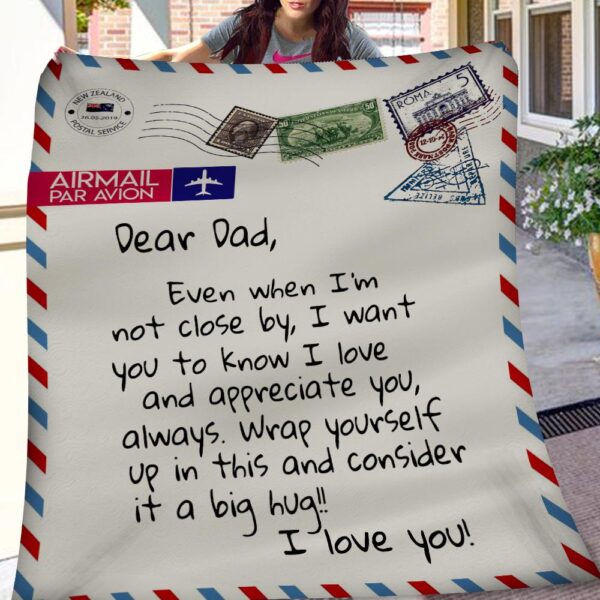 NEW ZEALAND
26.05.2019
POSTAL SERVICE
50
50
ROMA
5
AIRMAIL
PAR AVION
BELIZE
Dear Dad,
Even when I'm
not close by, I want
you to know I love
and appreciate you,
always. Wrap yourself
up in this and consider
it a big hug!!
I love you!